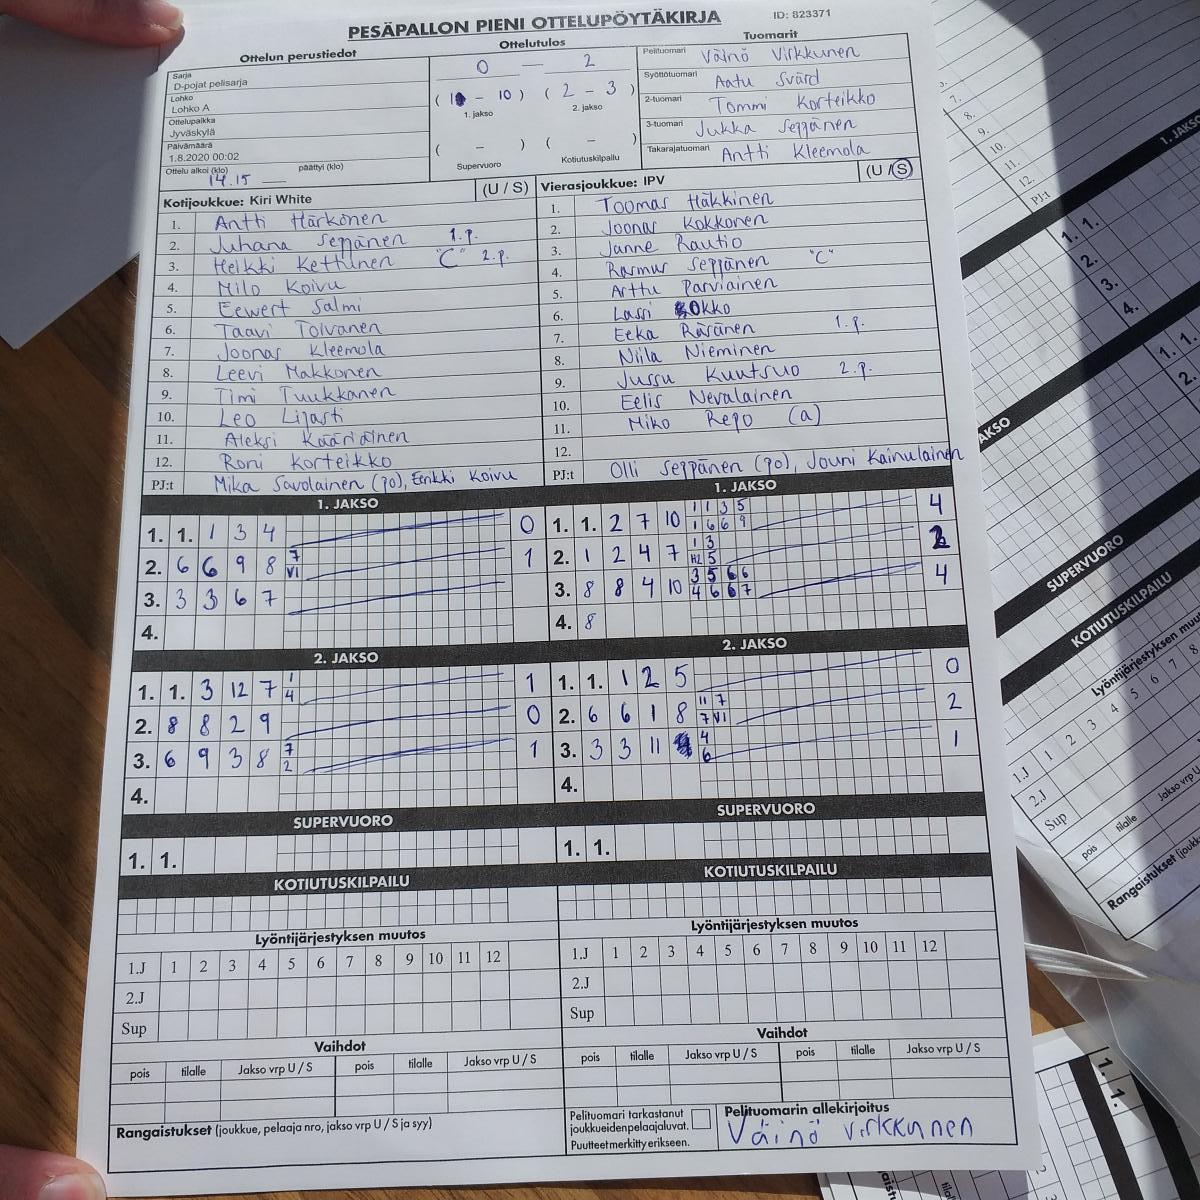 PESÄPALLON PIENI OTTELUPÖYTÄKIRJA
ID: 823371
Ottelun perustiedot
Sarja
D-pojat pelisarja
Lohko
Lohko A
Ottelupaikka
Jyväskylä
Päivämäärä
1.8.2020 00:02
Ottelu alkoi (klo) päättyi (klo)
14.15
Ottelutulos
0 — 2
( 1 - 10 ) ( 2 - 3 )
1. jakso 2. jakso
( - ) ( - )
Supervuoro Kotiutuskilpailu
Tuomarit
Pelituomari Väinö Virkkunen
Syöttötuomari Aatu Svärd
2-tuomari Tommi Korteikko
3-tuomari Jukka Seppänen
Takarajatuomari Antti Kleemola
Kotijoukkue: Kiri White (U / S)
1. Antti Härkönen
2. Juhana Seppänen 1.p.
3. Heikki Kettunen "C" 2.p.
4. Milo Koivu
5. Eewert Salmi
6. Taavi Tolvanen
7. Joonas Kleemola
8. Leevi Makkonen
9. Timi Tuukkanen
10. Leo Lijasti
11. Aleksi Kääriäinen
12. Roni Korteikko
PJ:t Mika Savolainen (po), Erikki Koivu
Vierasjoukkue: IPV (U / S)
1. Toomas Häkkinen
2. Joonas Kokkonen
3. Janne Rautio
4. Rasmus Seppänen "C"
5. Arttu Parviainen
6. Lassi Kokko
7. Eeka Räsänen 1.p.
8. Niila Nieminen
9. Jussu Kuutsuo 2.p.
10. Eelis Nevalainen
11. Miko Repo (a)
12.
PJ:t Olli Seppänen (po), Jouni Kainulainen
1. JAKSO
1. 1. 1 3 4 0
2. 6 6 9 8 7 VI 1
3. 3 3 6 7
4.
1. JAKSO
1. 1. 2 7 10 1 1 3 5 4
1 6 6 9
2. 1 2 4 7 1 3 2
H2 5
3. 8 8 4 10 3 5 6 6 4
4 6 6 7
4. 8
2. JAKSO
1. 1. 3 12 7 1 4 1
2. 8 8 2 9 0
3. 6 9 3 8 7 2 1
4.
2. JAKSO
1. 1. 1 2 5 0
2. 6 6 1 8 11 7 2
7 VI
3. 3 3 11 4 6 1
4.
SUPERVUORO
1. 1.
SUPERVUORO
1. 1.
KOTIUTUSKILPAILU
KOTIUTUSKILPAILU
Lyöntijärjestyksen muutos
1.J 1 2 3 4 5 6 7 8 9 10 11 12
2.J
Sup
Lyöntijärjestyksen muutos
1.J 1 2 3 4 5 6 7 8 9 10 11 12
2.J
Sup
Vaihdot
pois tilalle Jakso vrp U / S pois tilalle Jakso vrp U / S
Vaihdot
pois tilalle Jakso vrp U / S pois tilalle Jakso vrp U / S
Rangaistukset (joukkue, pelaaja nro, jakso vrp U / S ja syy)
Pelituomari tarkastanut
joukkueidenpelaajaluvat.
Puutteet merkitty erikseen.
Pelituomarin allekirjoitus
Väinö Virkkunen
7.
8.
9.
10.
11.
12.
PJ:t
1. JAKSO
1. 1.
2.
3.
4.
JAKSO
1. 1.
2.
SUPERVUORO
KOTIUTUSKILPAILU
Lyöntijärjestyksen muu
1.J 1 2 3 4 5 6 7 8
2.J
Sup
pois tilalle Jakso vrp U
Rangaistukset (joukk
1. 1.